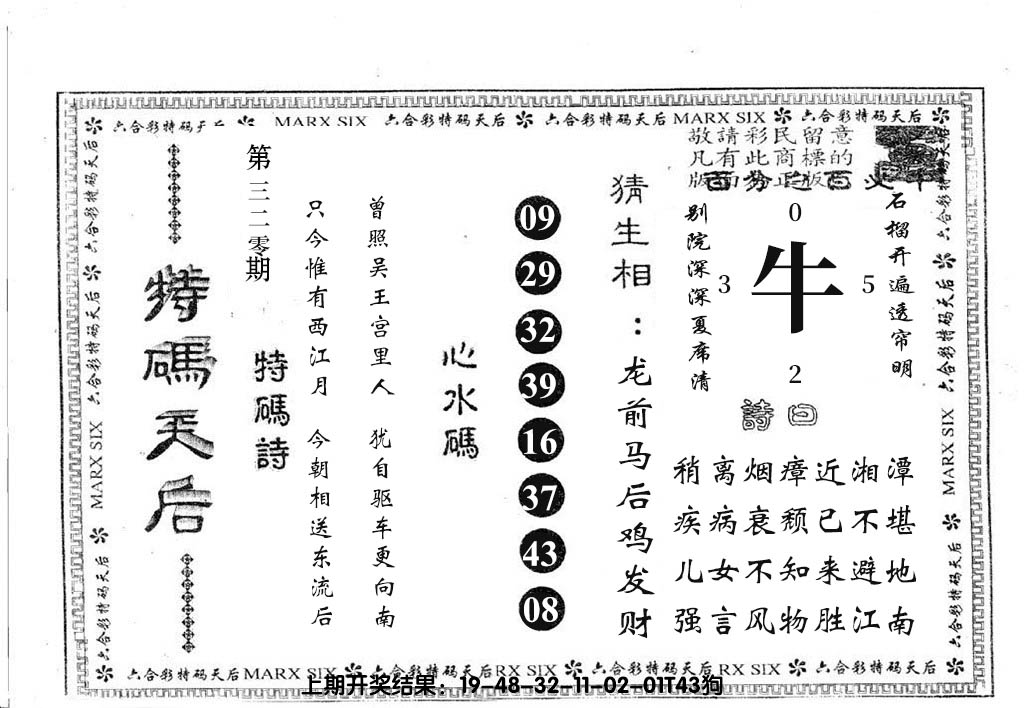 六合彩特码天后 MARX SIX 六合彩特码天后 六合彩特码天后 MARX SIX 六合彩特码天后
敬請彩民留意
凡有此商標的
版面为正版
特碼天后
第三二零期
特碼詩
只今惟有西江月 今朝相送东流后
曾照吴王宫里人 犹自驱车更向南
心水碼
09
29
32
39
16
37
43
08
猜生相：龙前马后鸡发财
别院深深夏席清
石榴开遍透帘明
0
3 牛 5
2
詩曰
稍离烟瘴近湘潭
疾病衰颓已不堪
儿女不知来避地
强言风物胜江南
六合彩特码天后 MARX SIX 六合彩特码天后
六合彩特码天后 MARX SIX 六合彩特码天后
六合彩特码天后 MARX SIX 六合彩特码天后RX SIX 六合彩特码天后RX SIX 六合彩特码天后
上期开奖结果：19-48-32-11-02-01T43狗